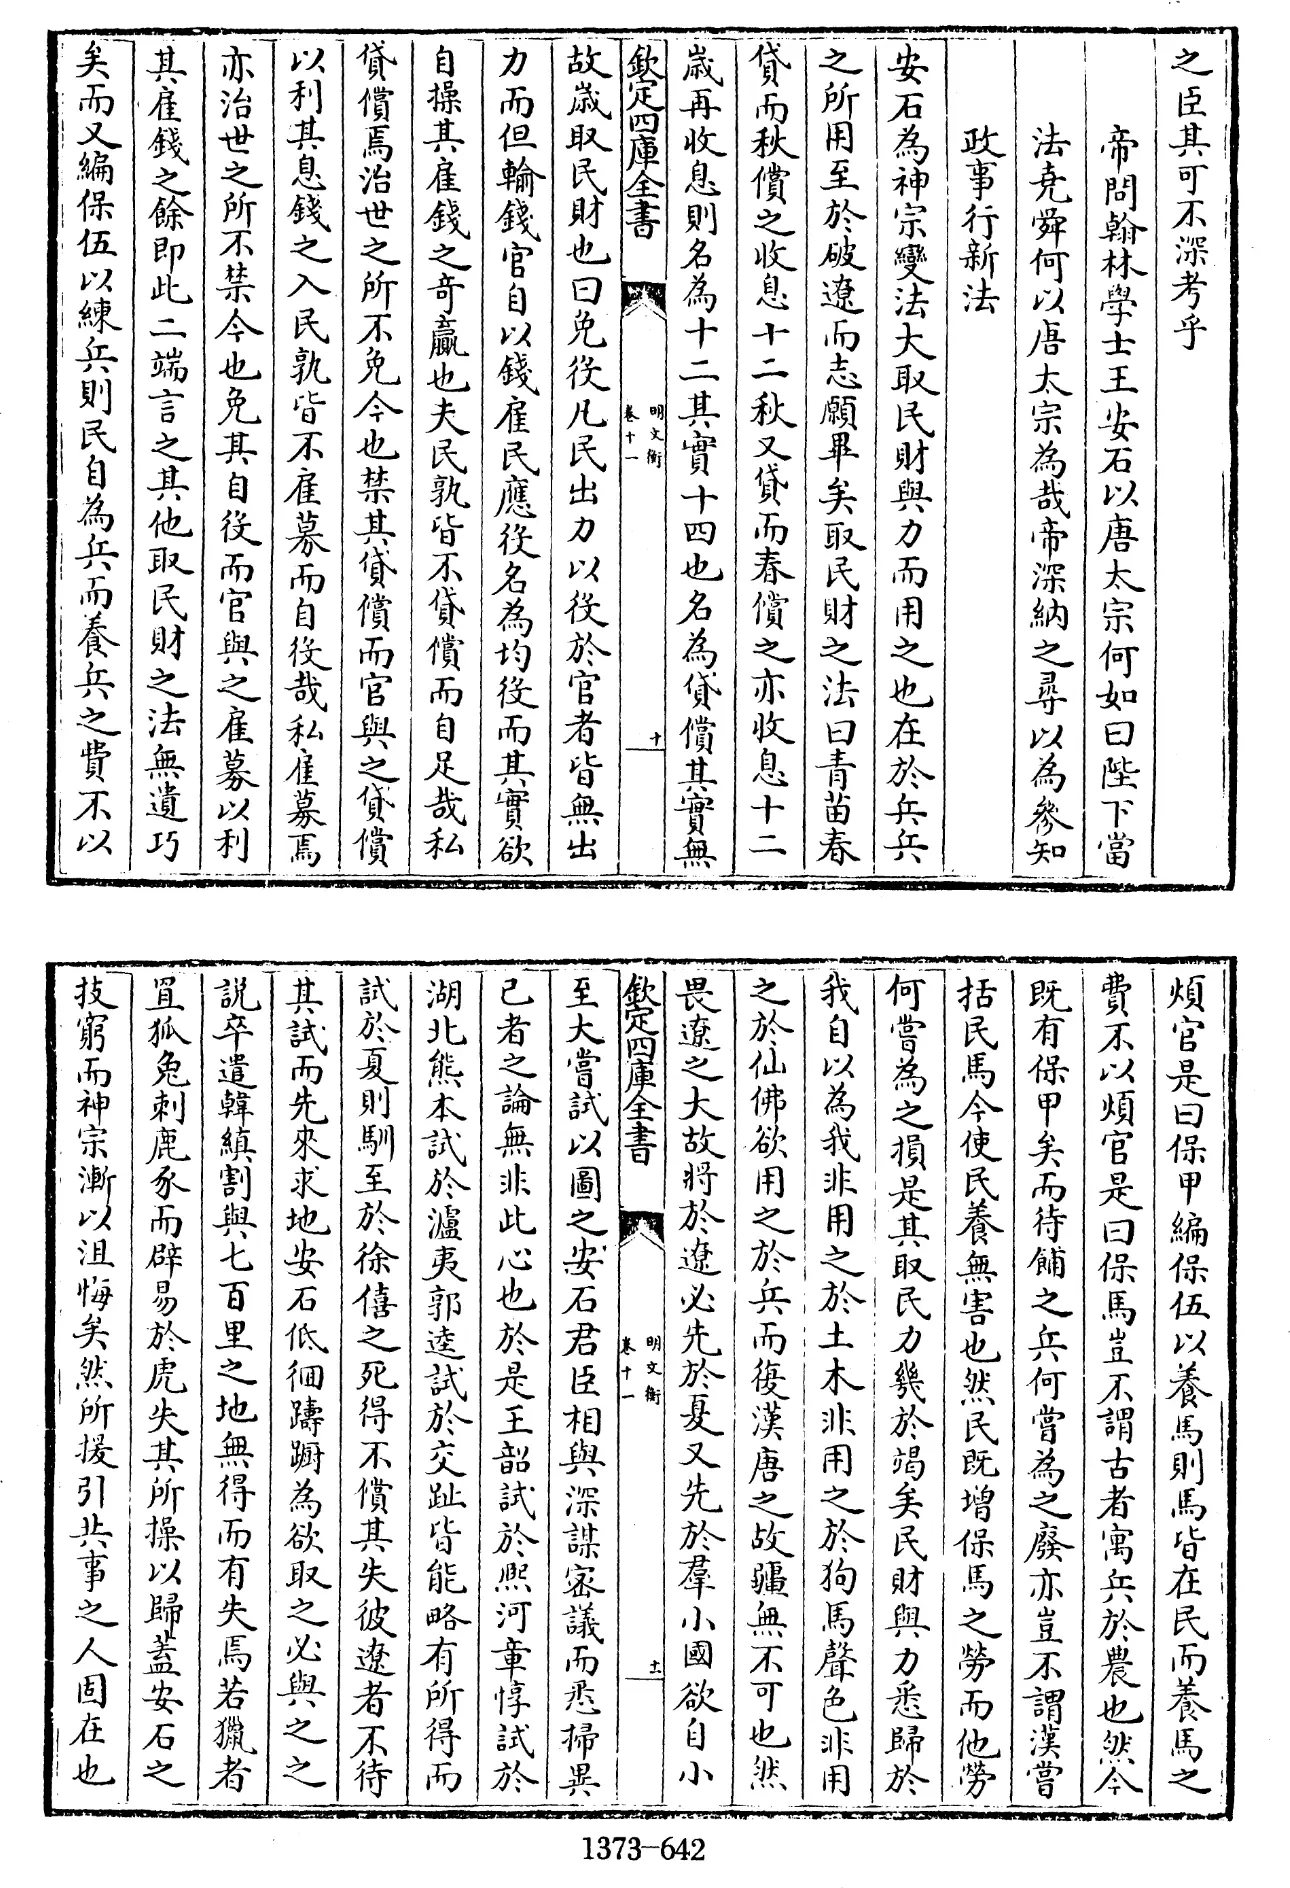 之臣其可不深考乎
帝問翰林學士王安石以唐太宗何如曰陛下當
法堯舜何以唐太宗為哉帝深納之尋以為參知
政事行新法
安石為神宗變法大取民財與力而用之也在於兵兵
之所用至於破遼而志願畢矣取民財之法曰青苗春
貸而秋償之收息十二秋又貸而春償之亦收息十二
歲再收息則名為十二其實十四也名為貸償其實無
欽定四庫全書
明文衡
卷十一
十
故歲取民財也曰免役凡民出力以役於官者皆無出
力而但輸錢官自以錢雇民應役名為均役而其實欲
自操其雇錢之奇贏也夫民孰皆不貸償而自足哉私
貸償焉治世之所不免今也禁其貸償而官與之貸償
以利其息錢之入民孰皆不雇募而自役哉私雇募焉
亦治世之所不禁今也免其自役而官與之雇募以利
其雇錢之餘即此二端言之其他取民財之法無遺巧
矣而又編保伍以練兵則民自為兵而養兵之費不以
煩官是曰保甲編保伍以養馬則馬皆在民而養馬之
費不以煩官是曰保馬豈不謂古者寓兵於農也然今
既有保甲矣而待餔之兵何嘗為之廢亦豈不謂漢嘗
括民馬今使民養無害也然民既增保馬之勞而他勞
何嘗為之損是其取民力幾於竭矣民財與力悉歸於
我自以為我非用之於土木非用之於狗馬聲色非用
之於仙佛欲用之於兵而復漢唐之故疆無不可也然
畏遼之大故將於遼必先於夏又先於羣小國欲自小
欽定四庫全書
明文衡
卷十一
十一
至大嘗試以圖之安石君臣相與深謀密議而悉掃異
己者之論無非此心也於是王韶試於熙河章惇試於
湖北熊本試於瀘夷郭逵試於交趾皆能略有所得而
試於夏則馴至於徐僖之死得不償其失彼遼者不待
其試而先來求地安石低徊躊躕為欲取之必與之之
説卒遣韓縝割與七百里之地無得而有失焉若獵者
罝狐兔刺鹿豕而辟易於虎失其所操以歸蓋安石之
技窮而神宗漸以沮悔矣然所援引共事之人固在也
1373-642